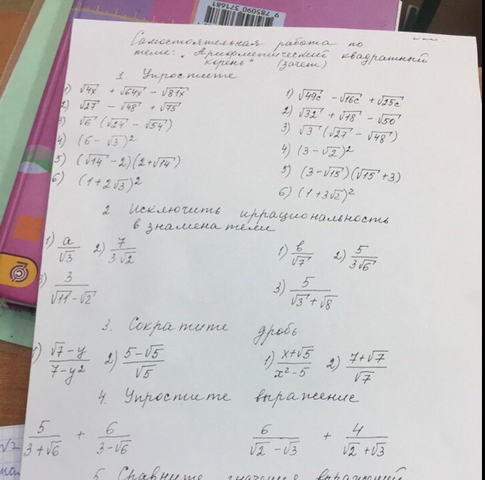 9 785090 371681
Самостоятельная работа по
теме: „Арифметический квадратный
корень" (зачет)
1. Упростите
1) √4x + √64x - √81x 1) √49c - √16c + √25c
2) √27 - √48 + √75 2) √32 + √18 - √50
3) √6 (√24 - √54) 3) √3 (√27 - √48)
4) (6 - √3)² 4) (3 - √2)²
5) (√14 - 2)(2 + √14) 5) (3 - √15)(√15 + 3)
6) (1 + 2√3)² 6) (1 + 3√2)²
2 Исключить иррациональность
в знаменатели
1) a/√3 2) 7/3√2 1) b/√7 2) 5/3√6
) 3/(√11 - √2) 3) 5/(√3 + √8)
3. Сократите дробь
1) (√7 - y)/(7 - y²) 2) (5 - √5)/√5 1) (x + √5)/(x² - 5) 2) (7 + √7)/√7
4. Упростите выражение
5/(3 + √6) + 6/(3 - √6) 6/(√2 - √3) + 4/(√2 + √3)
5 Сравните значение выражений